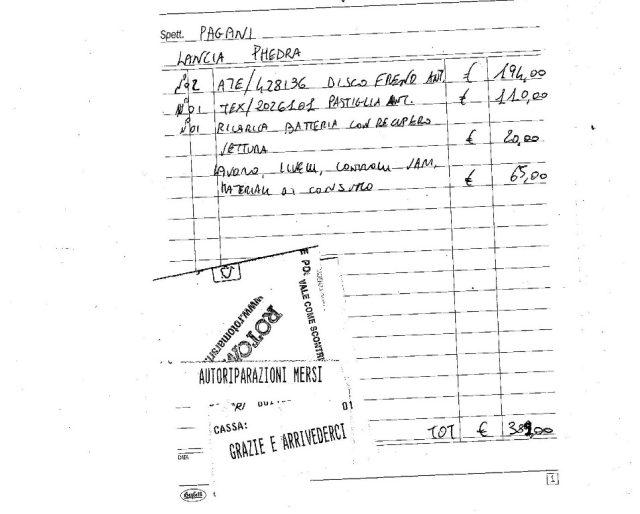 Spett. PAGANI
LANCIA PHEDRA
N°02 ATE/428136 DISCO FRENO ANT. € 194,00
N°01 TEX/2026101 PASTIGLIA ANT. € 110,00
N°01 RICARICA BATTERIA CON RECUPERO
VETTURA € 20,00
LAVORO, LIVELLI, CONTROLLI VARI,
MATERIALI DI CONSUMO € 65,00
E POI VALE COME SCONTRI
ROTOM
www.rotomarsr
AUTORIPARAZIONI MERSI
01
CASSA:
GRAZIE E ARRIVEDERCI
TOT € 389,00
Buffetti
1